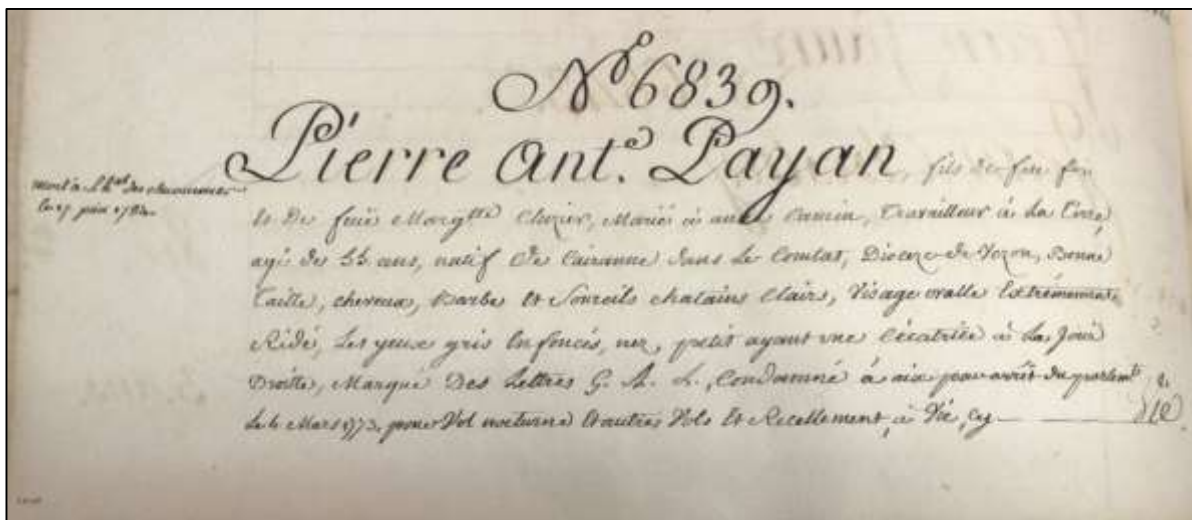 N.º 6839.
Pierre Ant.e Payan, fils de feu
mort à l'h.al des chiourmes
le 27 juin 1784
Et de feüe Marg.tte Clozier, Marié à anne Camin, Travailleur à la Terre,
agé des 55 ans, natif de Cairanne dans le Comtat, Dioceze de Vezon, Bonne
Taille, cheveux, Barbe et Sourcils chatains Clairs, Visage ovalle Extrémement
Ridé, Les yeux gris Enfoncés, nez, petit ayant une Cicatrice à La Joüe
Droitte, Marqué Des Lettres G. A. L., Condamné à aix par arrêt du parlem.t
de Mars 1773, pour Vol nocturne Et autres Vols Et Recellement, à Vie, cy
Vie